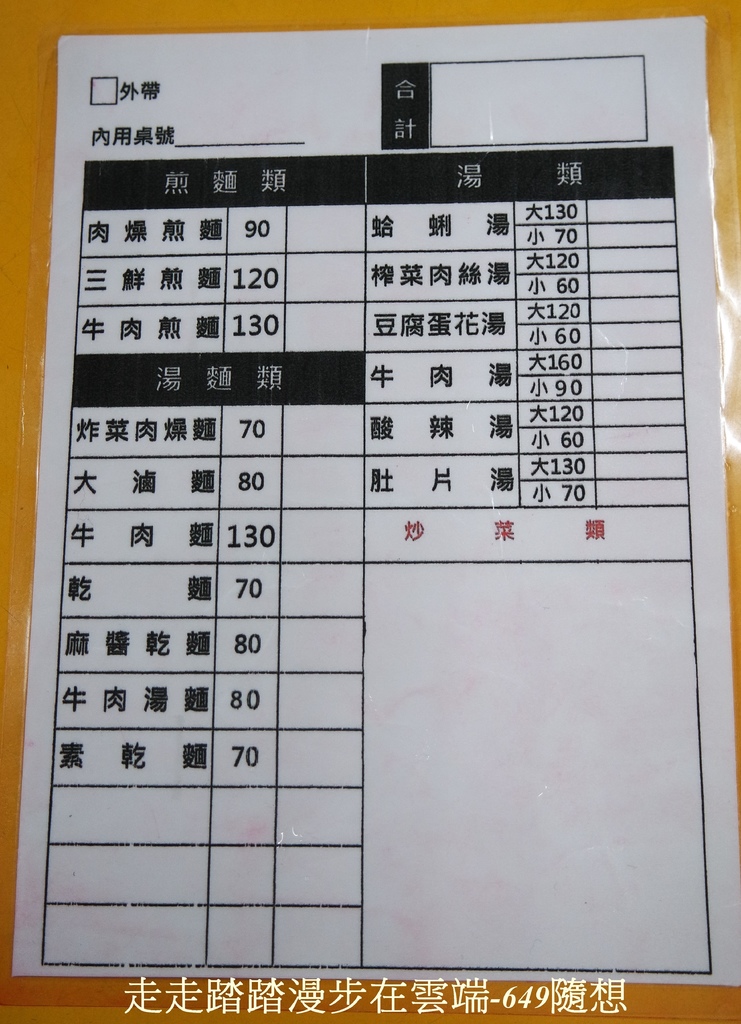 外帶
內用桌號
合計
煎麵類
肉燥煎麵 90
三鮮煎麵 120
牛肉煎麵 130
湯麵類
炸菜肉燥麵 70
大滷麵 80
牛肉麵 130
乾麵 70
麻醬乾麵 80
牛肉湯麵 80
素乾麵 70
湯類
蛤蜊湯 大130
小 70
榨菜肉絲湯 大120
小 60
豆腐蛋花湯 大120
小 60
牛肉湯 大160
小 90
酸辣湯 大120
小 60
肚片湯 大130
小 70
炒菜類
走走踏踏漫步在雲端-649隨想